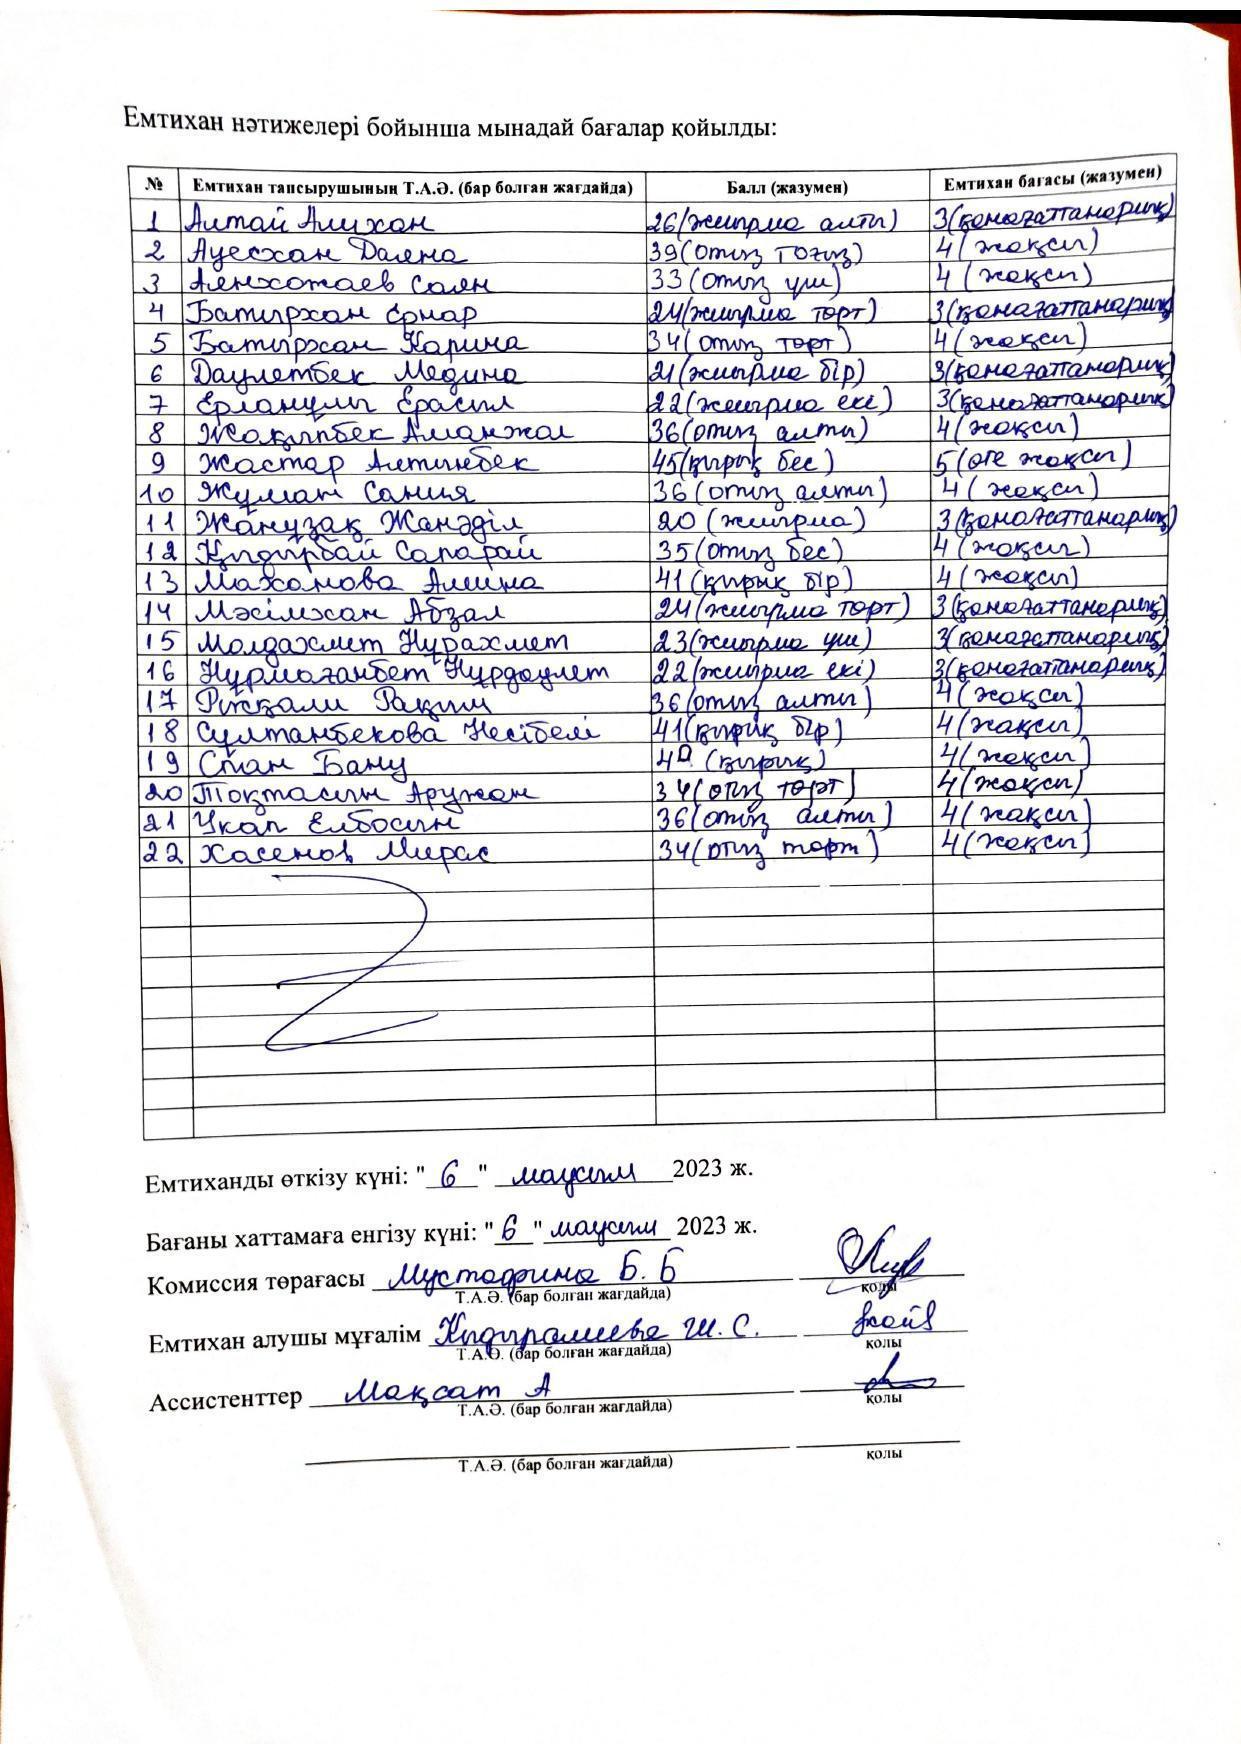 Емтихан нәтижелері бойынша мынадай бағалар қойылды:
№ Емтихан тапсырушының Т.А.Ә. (бар болған жағдайда) Балл (жазумен) Емтихан бағасы (жазумен)
1 Алтай Алихан 26(жиырма алты) 3(қанағаттанарлық)
2 Ауесхан Даяна 39(отыз тоғыз) 4(жақсы)
3 Аянхожаев Саян 33(отыз үш) 4(жақсы)
4 Батырхан Ернар 24(жиырма төрт) 3(қанағаттанарлық)
5 Батырхан Карина 34(отыз төрт) 4(жақсы)
6 Даулетбек Медина 21(жиырма бір) 3(қанағаттанарлық)
7 Ерланұлы Ерасыл 22(жиырма екі) 3(қанағаттанарлық)
8 Жақыпбек Аманжол 36(отыз алты) 4(жақсы)
9 Жастар Алтынбек 45(қырық бес) 5(өте жақсы)
10 Жұман Сания 36(отыз алты) 4(жақсы)
11 Жанұзақ Жанәділ 20(жиырма) 3(қанағаттанарлық)
12 Қыдырбай Сапарай 35(отыз бес) 4(жақсы)
13 Маханова Амина 41(қырық бір) 4(жақсы)
14 Мәсімхан Абзал 24(жиырма төрт) 3(қанағаттанарлық)
15 Молдахмет Нұрахмет 23(жиырма үш) 3(қанағаттанарлық)
16 Нұрмағанбет Нұрдәулет 22(жиырма екі) 3(қанағаттанарлық)
17 Рақым 36(отыз алты) 4(жақсы)
18 Сұлтанбекова Несібелі 41(қырық бір) 4(жақсы)
19 Спан Бану 40(қырық) 4(жақсы)
20 Тоқтасын Аружан 34(отыз төрт) 4(жақсы)
21 Укап Елбосын 36(отыз алты) 4(жақсы)
22 Хасенов Мирас 34(отыз төрт) 4(жақсы)
Емтиханды өткізу күні: "6" маусым 2023 ж.
Бағаны хаттамаға енгізу күні: "6" маусым 2023 ж.
Комиссия төрағасы Мустафина Б.Б
Т.А.Ә. (бар болған жағдайда) қолы
Емтихан алушы мұғалім Кыдыралиева Ж.С.
Т.А.Ә. (бар болған жағдайда) қолы
Ассистенттер Мақсат А
Т.А.Ә. (бар болған жағдайда) қолы
Т.А.Ә. (бар болған жағдайда) қолы